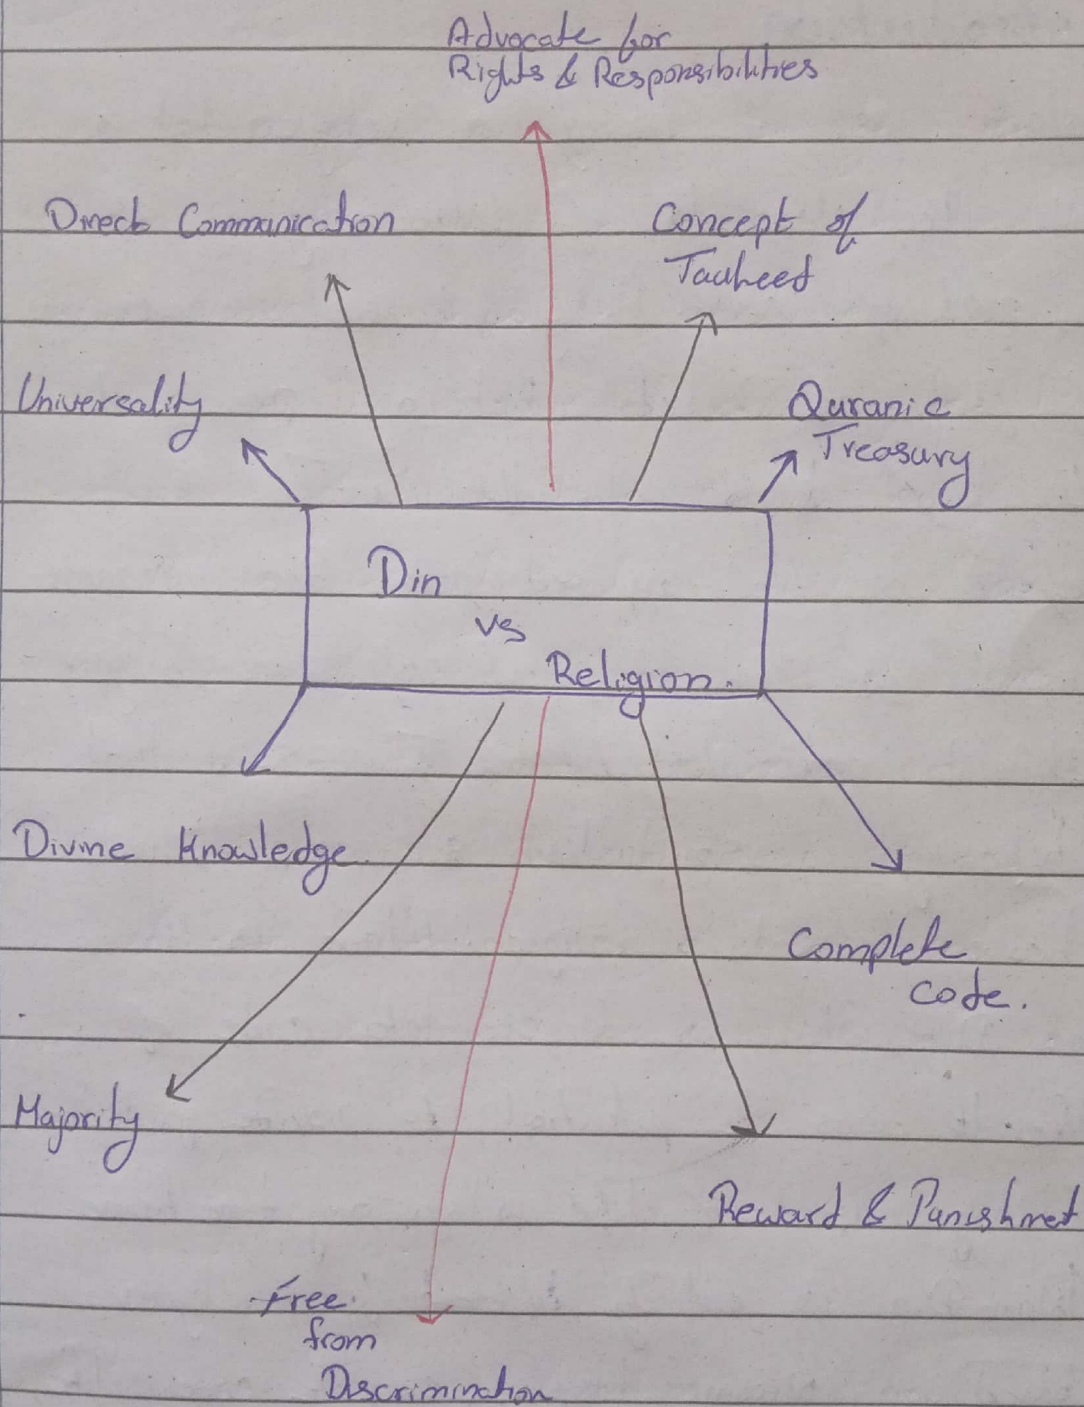 Advocate for
Rights & Responsibilities
Direct Communication
Concept of
Tauheed
Universality
Quranic
Treasury
Din
vs
Religion.
Divine Knowledge.
Complete
code.
Majority
Reward & Punishmet
Free
from
Discrimination